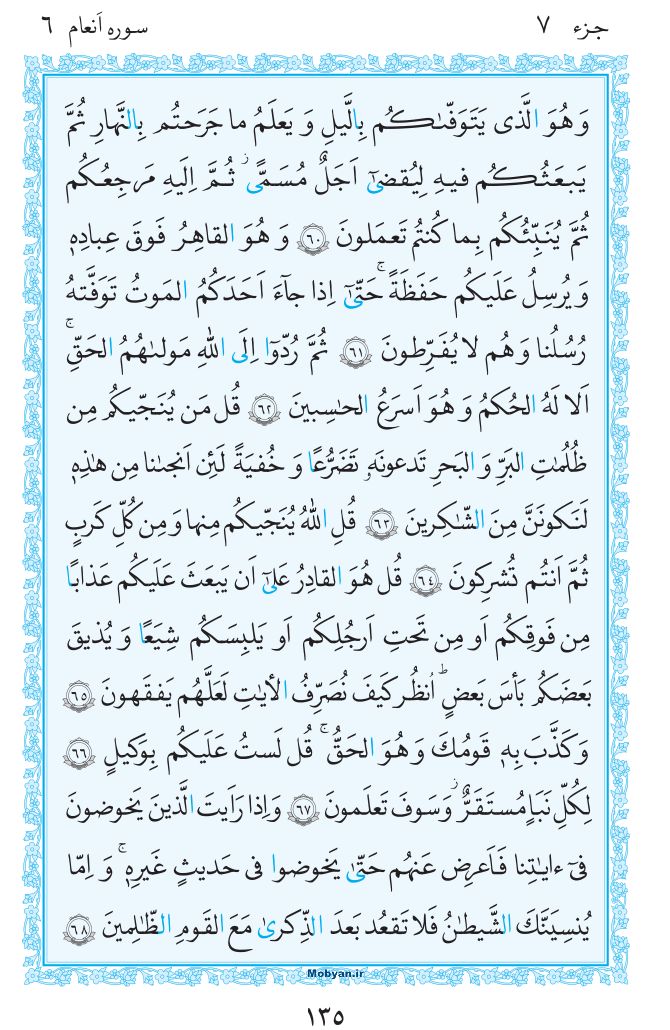 جزء ۷
سوره اَنعام ٦
وَ هُوَ الَّذی یَتَوَفّىٰكُم بِالَّیلِ وَ یَعلَمُ ما جَرَحتُم بِالنَّهارِ ثُمَّ
یَبعَثُكُم فیهِ لِیُقضىٰٓ اَجَلٌ مُسَمًّىۖ ثُمَّ اِلَیهِ مَرجِعُكُم
ثُمَّ یُنَبِّئُكُم بِما كُنتُم تَعمَلونَ ﴿٦٠﴾ وَ هُوَ القاهِرُ فَوقَ عِبادِهٖ
وَ یُرسِلُ عَلَیكُم حَفَظَةً ۚ حَتّىٰٓ اِذا جآءَ اَحَدَكُمُ المَوتُ تَوَفَّتهُ
رُسُلُنا وَ هُم لا یُفَرِّطونَ ﴿٦١﴾ ثُمَّ رُدّوٓا اِلَى اللهِ مَولىٰهُمُ الحَقِّ ۚ
اَلا لَهُ الحُكمُ وَ هُوَ اَسرَعُ الحٰسِبینَ ﴿٦٢﴾ قُل مَن یُنَجّیكُم مِن
ظُلُمٰتِ البَرِّ وَ البَحرِ تَدعونَهٗ تَضَرُّعًا وَ خُفیَةً لَئِن اَنجىٰنا مِن هٰذِهٖ
لَنَكونَنَّ مِنَ الشّٰكِرینَ ﴿٦٣﴾ قُلِ اللهُ یُنَجّیكُم مِنها وَ مِن كُلِّ كَربٍ
ثُمَّ اَنتُم تُشرِكونَ ﴿٦٤﴾ قُل هُوَ القادِرُ عَلىٰٓ اَن یَبعَثَ عَلَیكُم عَذابًا
مِن فَوقِكُم اَو مِن تَحتِ اَرجُلِكُم اَو یَلبِسَكُم شِیَعًا وَ یُذیقَ
بَعضَكُم بَأسَ بَعضٍ ؕ اُنظُر كَیفَ نُصَرِّفُ الأیٰتِ لَعَلَّهُم یَفقَهونَ ﴿٦٥﴾
وَ كَذَّبَ بِهٖ قَومُكَ وَ هُوَ الحَقُّ ۚ قُل لَستُ عَلَیكُم بِوَكیلٍ ﴿٦٦﴾
لِكُلِّ نَبَاٍ مُستَقَرٌّ ۚ وَ سَوفَ تَعلَمونَ ﴿٦٧﴾ وَ اِذا رَاَیتَ الَّذینَ یَخوضونَ
فىٓ ءایٰتِنا فَاَعرِض عَنهُم حَتّىٰ یَخوضوا فی حَدیثٍ غَیرِهٖ ۚ وَ اِمّا
یُنسِیَنَّكَ الشَّیطٰنُ فَلا تَقعُد بَعدَ الذِّكرىٰ مَعَ القَومِ الظّٰلِمینَ ﴿٦٨﴾
Mobyan.ir
١٣٥